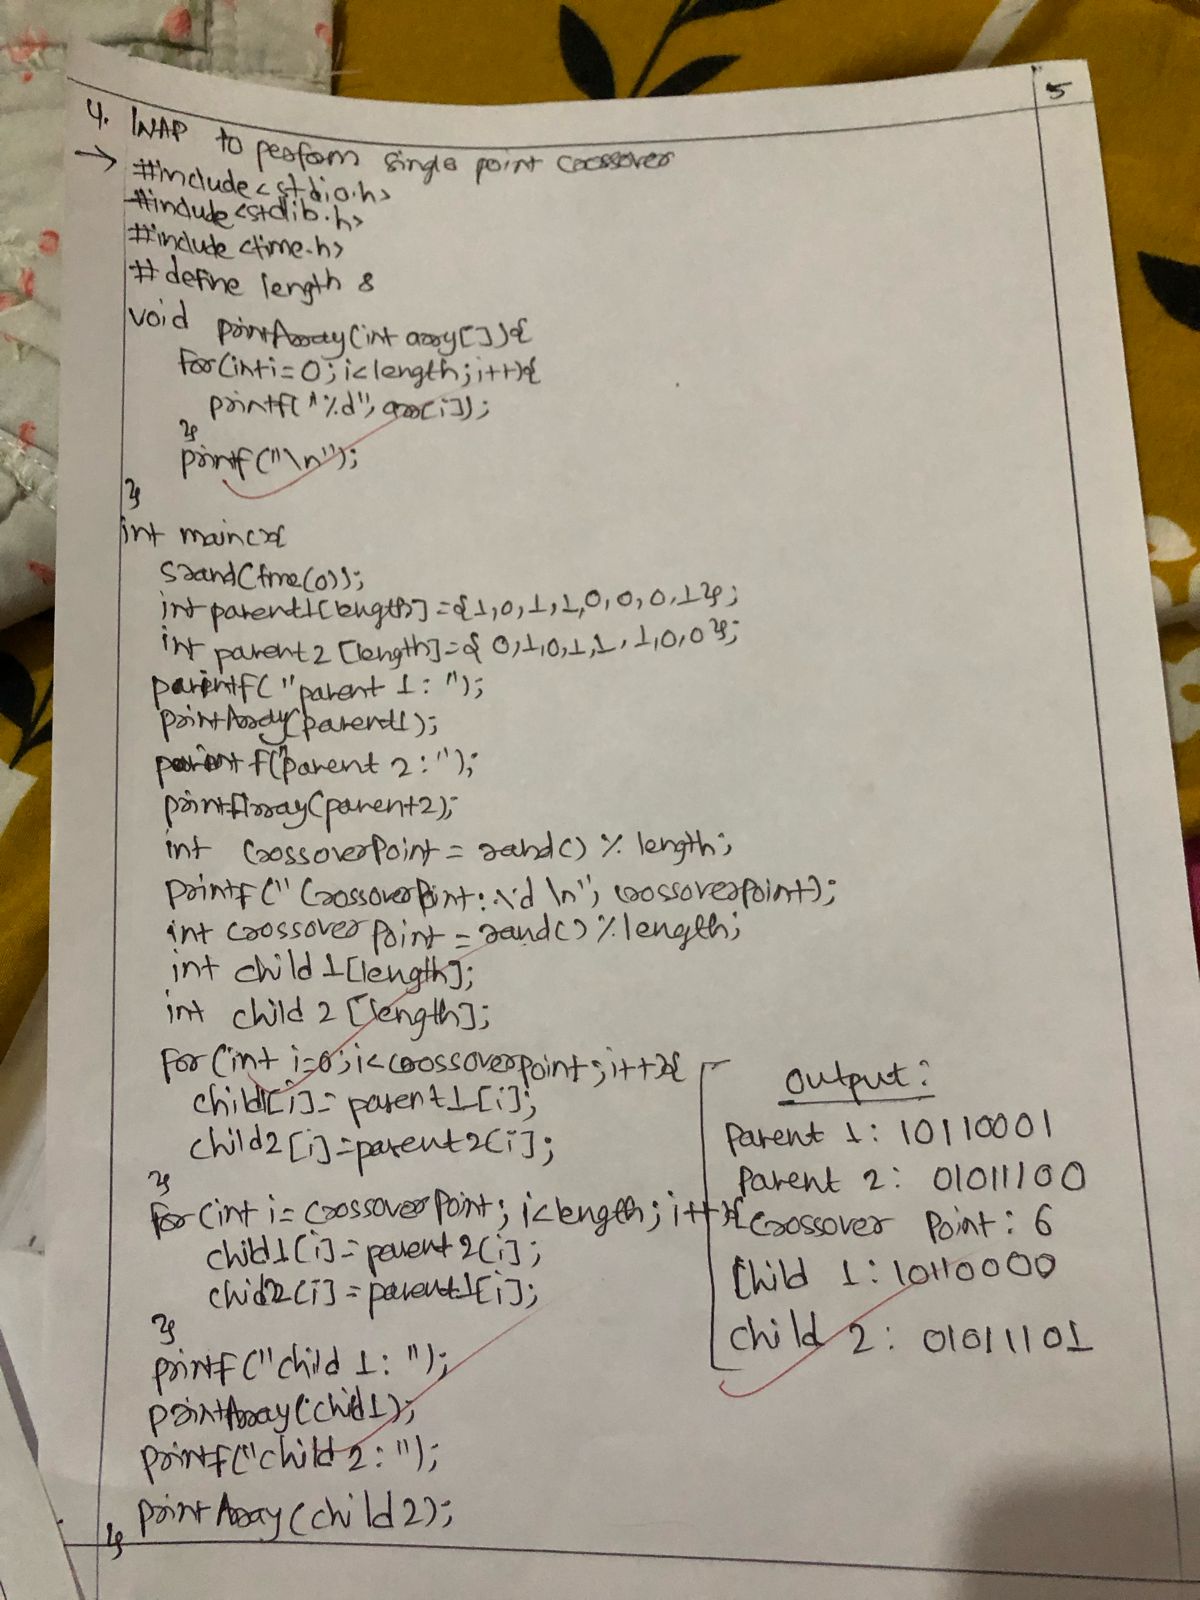 5
4. WAP to perform single point crossover
→ #include<stdio.h>
#include<stdlib.h>
#include <time.h>
# define length 8
void printArray(int array[]){
for(int i=0;i<length;i++){
printf("%d",arr[i]);
}
printf("\n");
}
int main(){
srand(time(0));
int parent1[length]={1,0,1,1,0,0,0,1};
int parent2[length]={0,1,0,1,1,1,0,0};
parintf("parent 1: ");
printArray(parent1);
parintf("parent 2:");
printArray(parent2);
int crossoverPoint = rand() % length;
printf("CrossoverPoint:%d \n", crossoverpoint);
int crossover Point = rand() % length;
int child 1[length];
int child 2 [length];
for(int i=0;i<crossoverpoint;i++){
child[i]=parent1[i];
child2[i]=parent2[i];
}
for(int i=crossoverPoint; i<length;i++){
child1[i]=parent2[i];
chid2[i]=parent1[i];
}
printf("child 1: ");
printArray(child1);
printf("child 2: ");
printArray(child2);
}
output:
Parent 1: 10110001
Parent 2: 01011100
Crossover Point: 6
Child 1: 10110000
child 2: 01011101